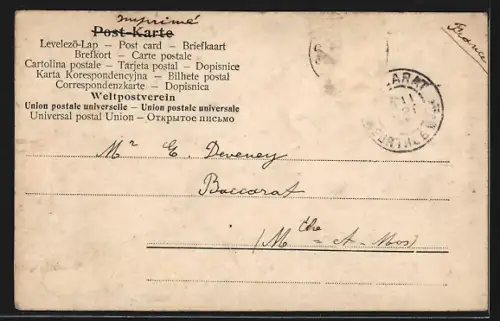 Imprimé
Post-Karte
Levelező-Lap – Post card – Briefkaart
Brefkort – Carte postale
Cartolina postale – Tarjeta postal – Dopisnice
Karta Korespondencyjna – Bilhete postal
Correspondenzkarte – Dopisnica
Weltpostverein
Union postale universelle – Union postale universale
Universal postal Union – Открытое письмо
France
ARAT
11
Mr E. Deveney
Baccarat
(Mthe – et – Mos)